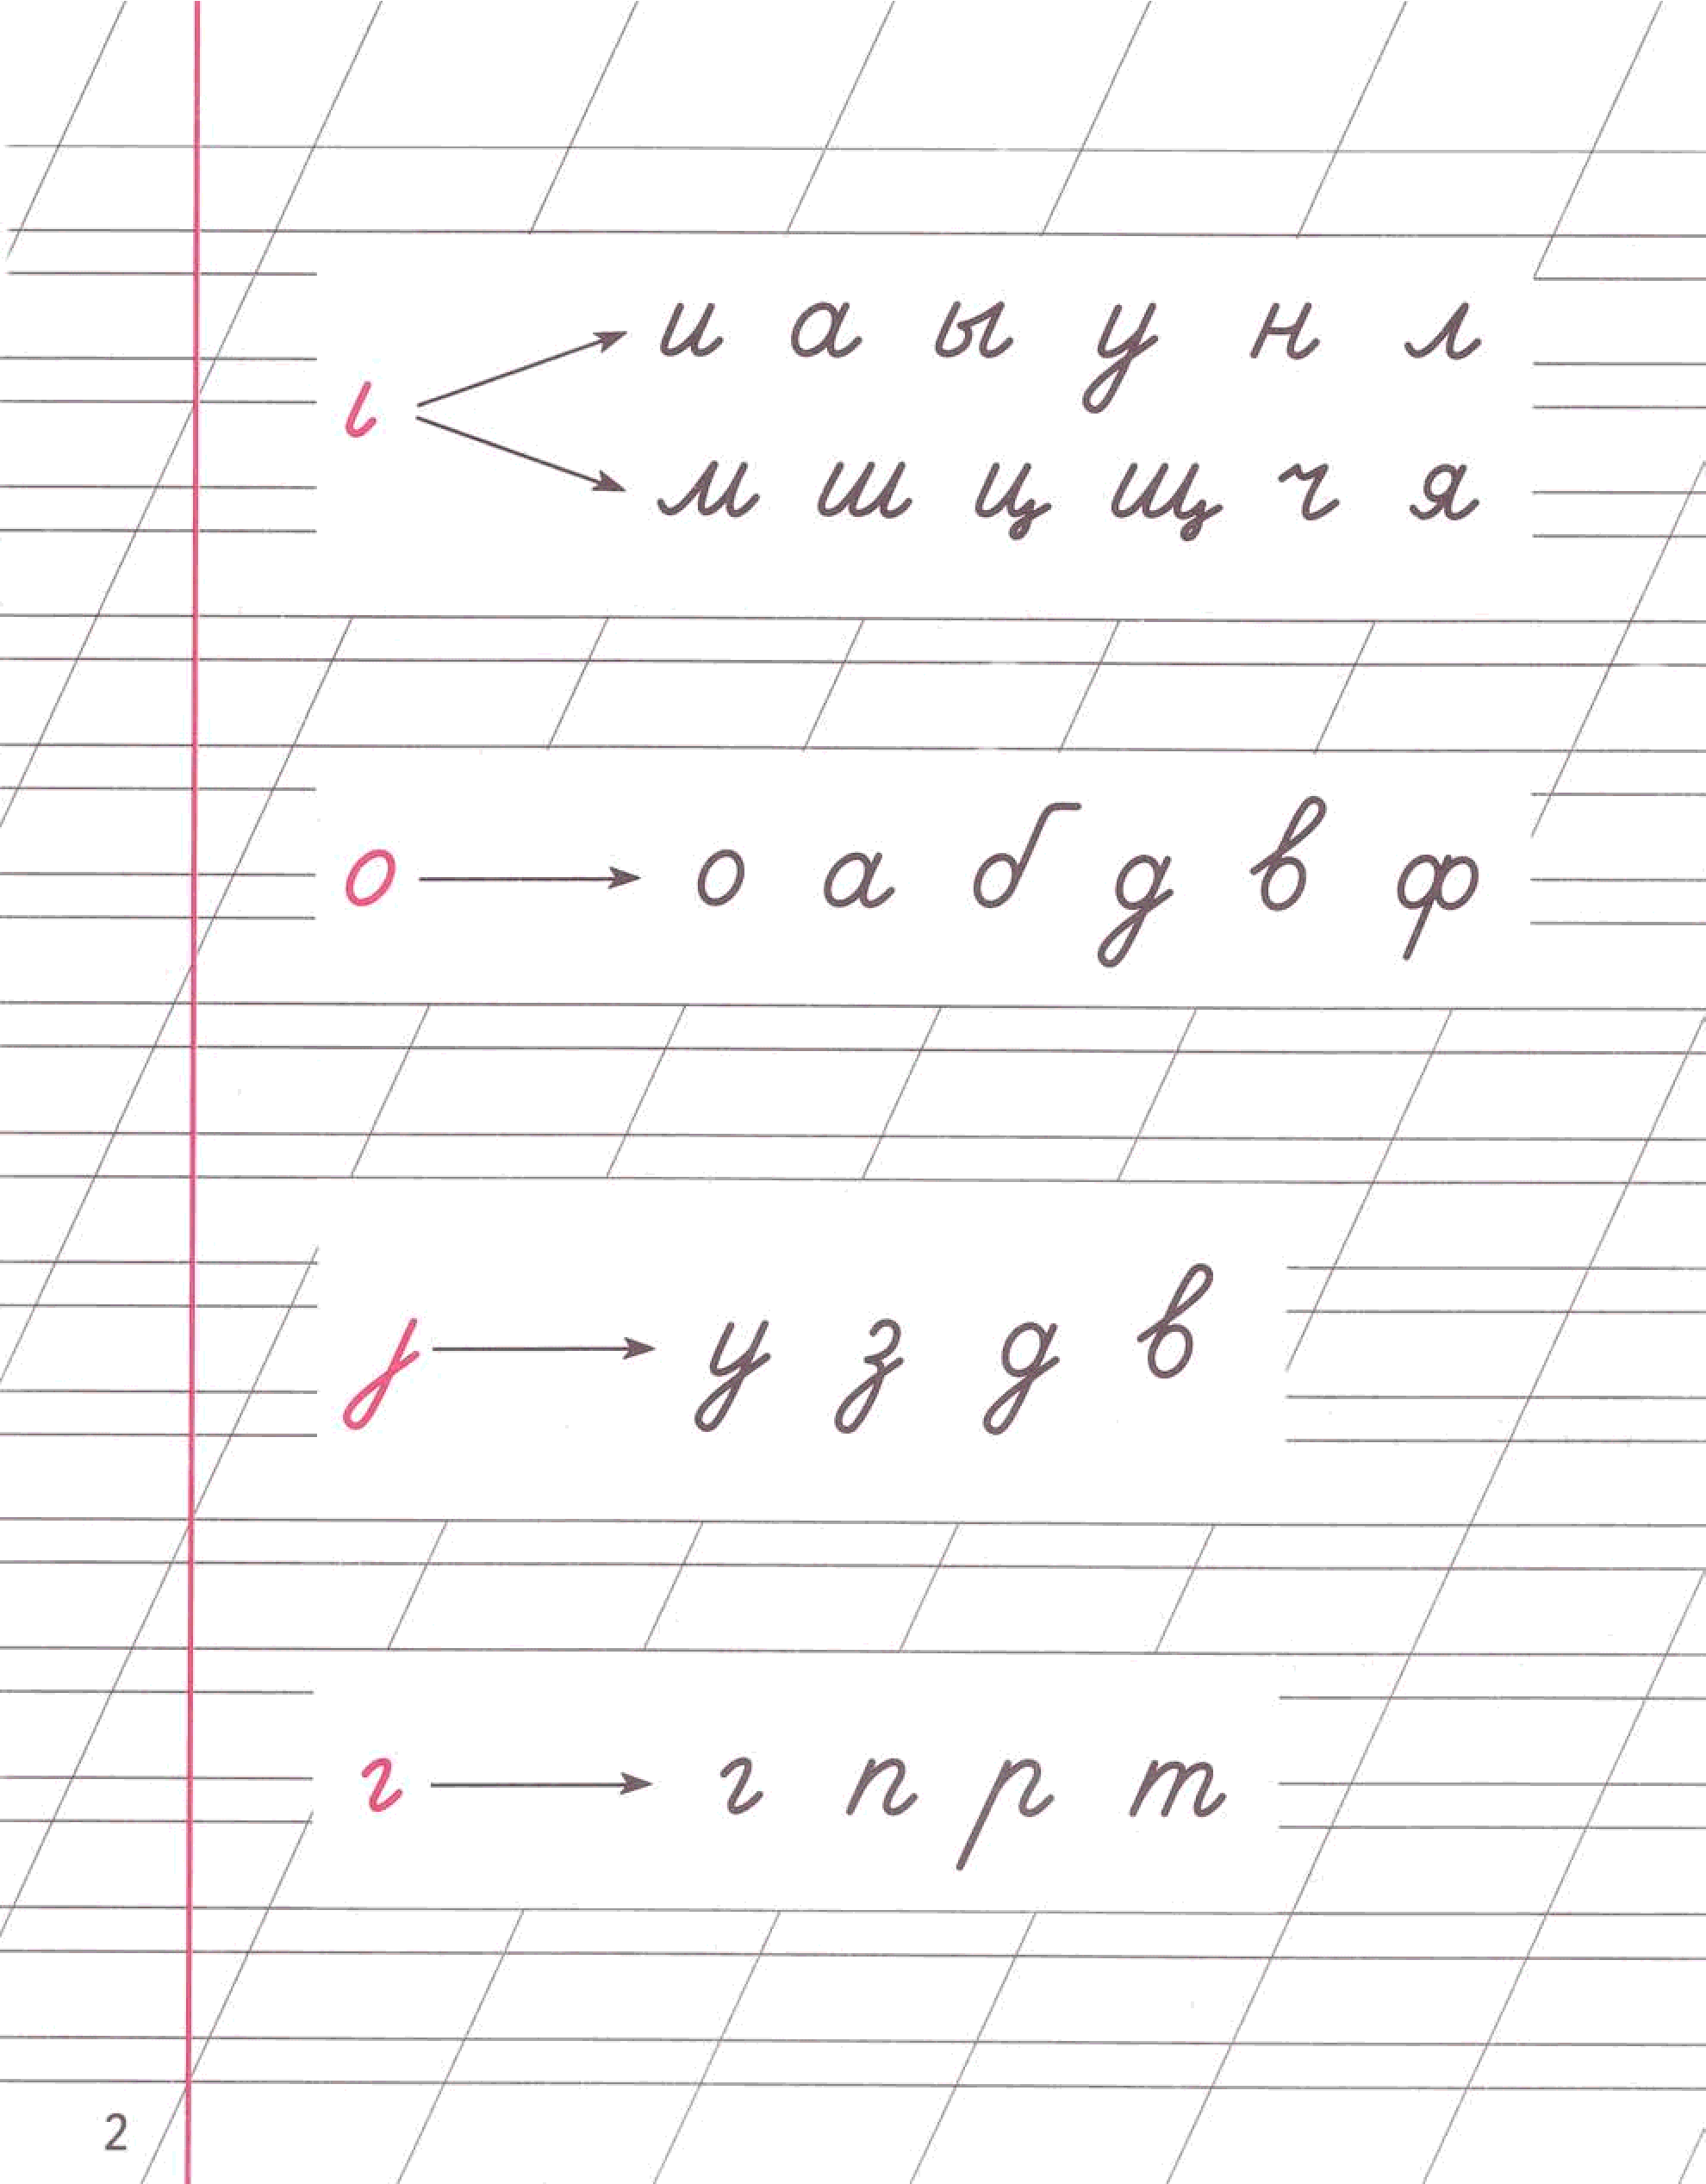 и а ы у н л
ı
м ш ц щ ч я
о о а б д в ф
j у з д в
г г п р т
2